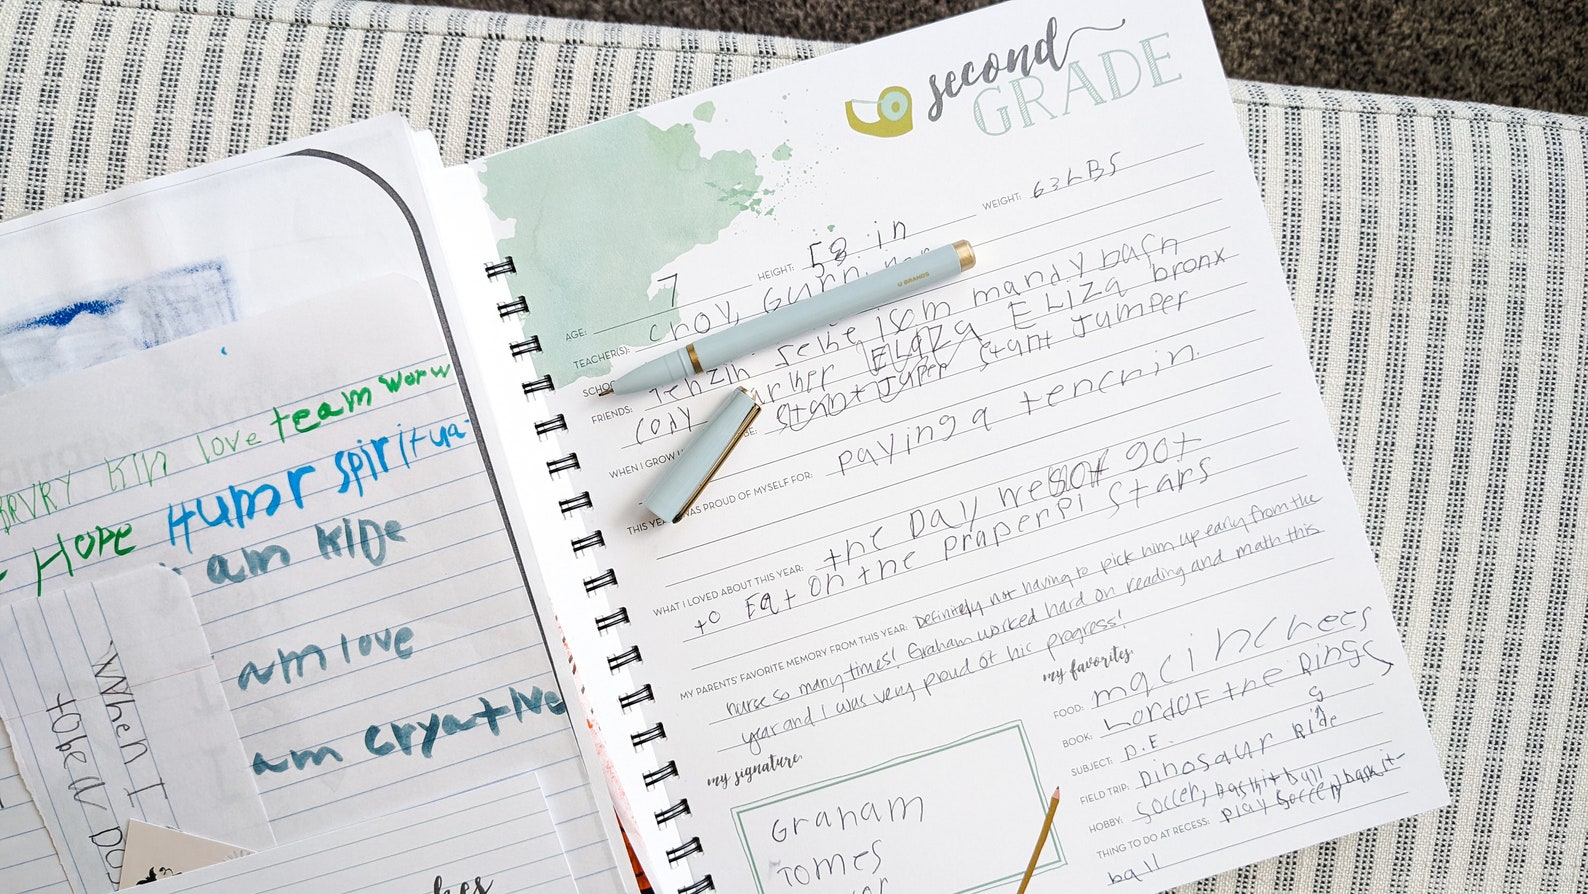 second
GRADE
WEIGHT: 63 LBS
HEIGHT: 58 in
AGE: 7
TEACHER(S): choy,
mandy bafn
FRIENDS:
ELIZA bronx
cody
stunt Jumper
WHEN I GROW
THIS YEAR WAS PROUD OF MYSELF FOR: paying a tenchin.
WHAT I LOVED ABOUT THIS YEAR: the Day we got
to Eat on the praperpi stars
MY PARENTS' FAVORITE MEMORY FROM THIS YEAR: Definitely not having to pick him up early from the
nurse so many times! Graham worked hard on reading and math this
year and I was very proud of his progress!
my signature:
Graham
Tomes
my favorites:
FOOD: macincheес
BOOK: Lord OF the Rings
SUBJECT: P.E.
FIELD TRIP: Dinosaur Ridg
HOBBY: soccer,
THING TO DO AT RECESS: play soccer, baskit-
ball
U BRANDS
BRVRY KIN love team worw
Hope Humr spiritua
am KIDe
am love
am cryative
When I
to be a Do